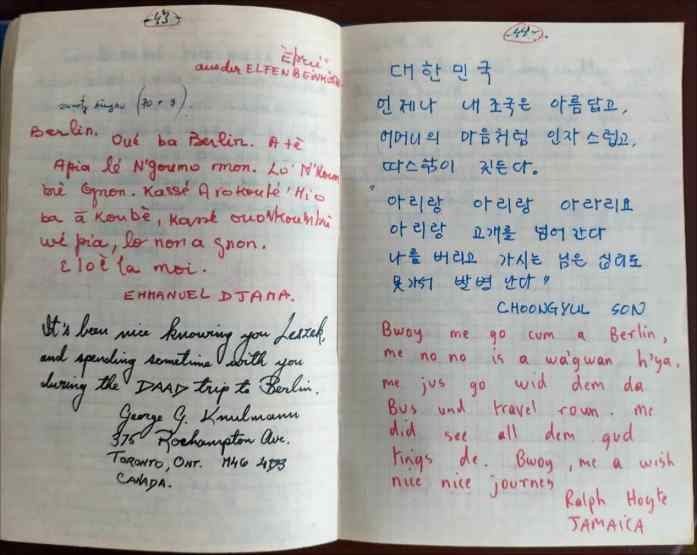 - 43 -
"Épui"
aus der ELFENBEINKÜSTE
(70 + 9).
Berlin. Oué ba Berlin. A tè
Apia lé N'goumo mon. Lo N'Koum
bié Gnon. Kassé A rokouté! Hio
ba ā Koubè, Kassé ouo N'Koumbié
wé pia, lo non a gnon.
Eloè la moi.
EMMANUEL DJAMA.
It's been nice knowing you Leszek,
and spending sometime with you
during the DAAD trip to Berlin.
George G. Knulmann
375 Roehampton Ave.
TORONTO, ONT. M4G
CANADA.
- 44 -
대한민국
언제나 내 조국은 아름답고,
어머니의 마음처럼 인자스럽고,
따스함이 짓든다.
"아리랑 아리랑 아라리요
아리랑 고개를 넘어간다
나를 버리고 가시는 님은 십리도
못가서 발병 난다"
CHOONGYUL SON
Bwoy me go cum a Berlin,
me no no is a wa'gwan h'ya.
me jus go wid dem da
Bus und travel roun. me
did see all dem gud
tings de. Bwoy, me a wish
nice nice journes
Ralph Hoyte
JAMAICA